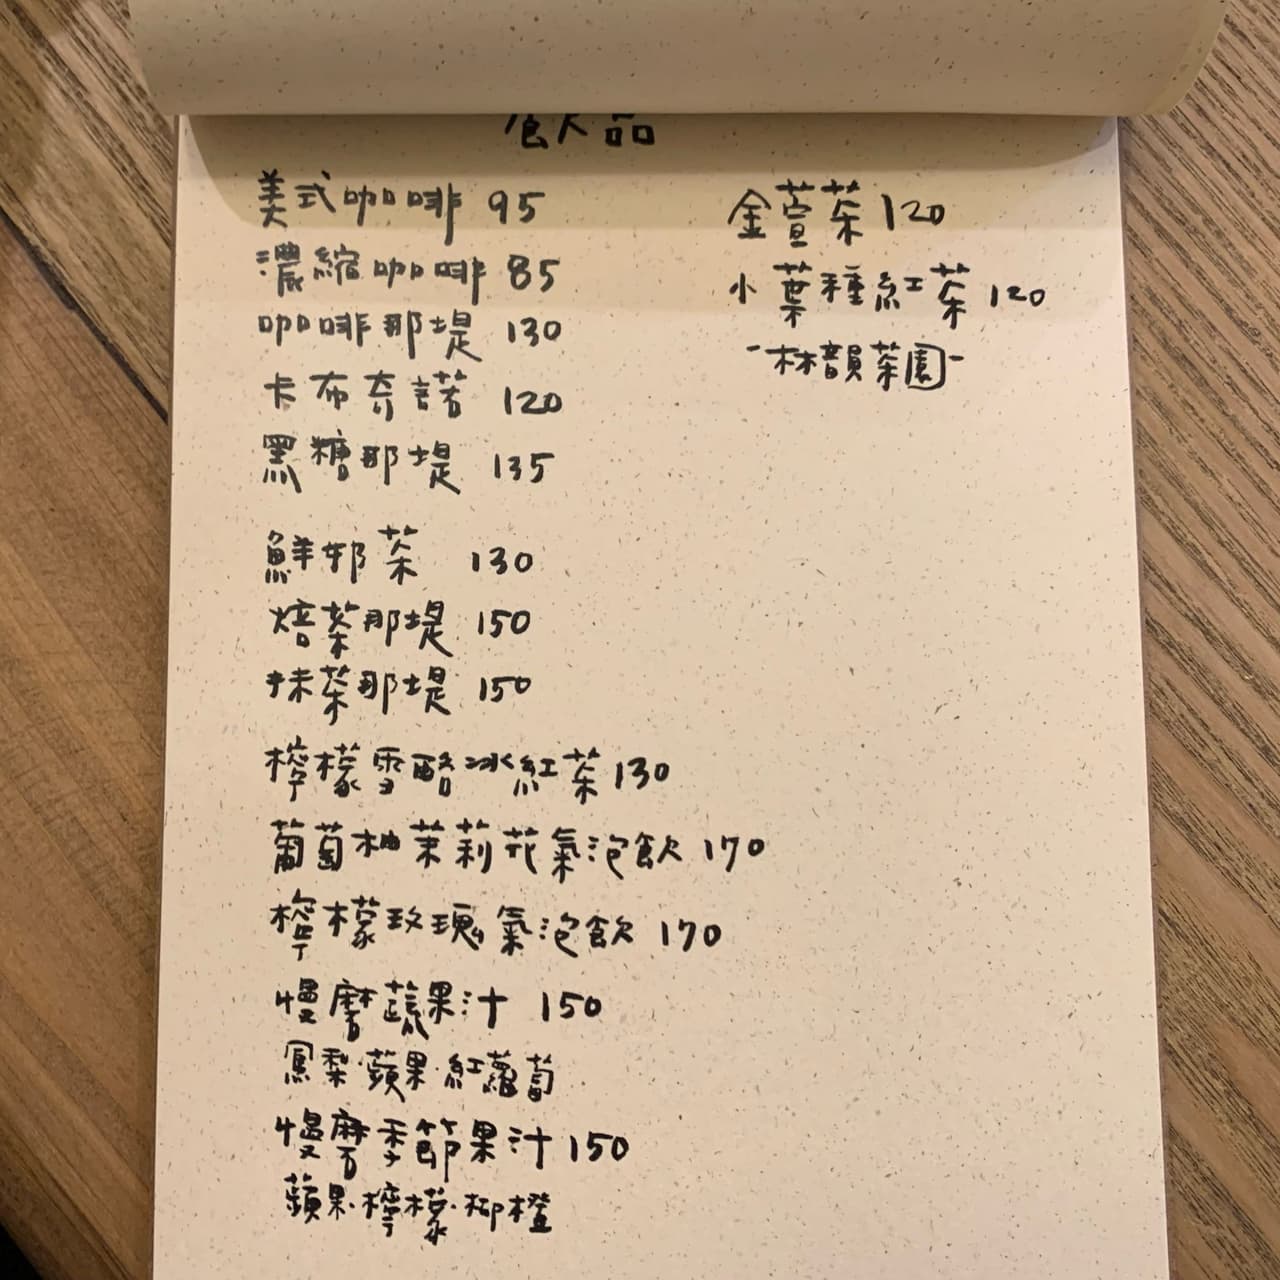 飲品
美式咖啡 95
濃縮咖啡 85
咖啡那堤 130
卡布奇諾 120
黑糖那堤 135
鮮邦茶 130
焙茶那堤 150
抹茶那堤 150
檸檬雪酪冰紅茶 130
葡萄柚茉莉花氣泡飲 170
檸檬玫瑰氣泡飲 170
慢磨蔬果汁 150
鳳梨·蘋果·紅蘿蔔
慢磨季節果汁 150
蘋果·檸檬·柳橙
金萱茶 120
小葉種紅茶 120
-林韻茶園-